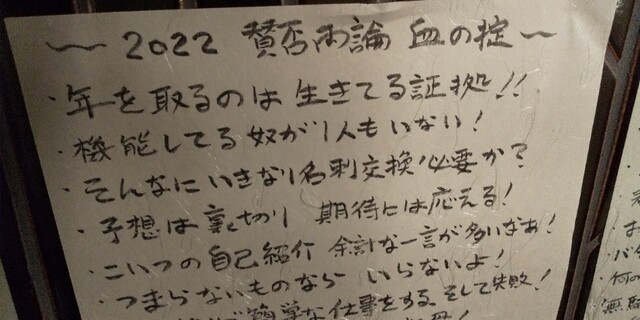 ～2022 賛否両論 血の掟～
・年を取るのは生きてる証拠!!
・機能してる奴が1人もいない!
・そんなにいきなり名刺交換必要か?
・予想は裏切り 期待には応える!
・こいつの自己紹介 余計な一言が多いなぁ!
・つまらないものなら いらないよ!
簡単な仕事をする、そして失敗!